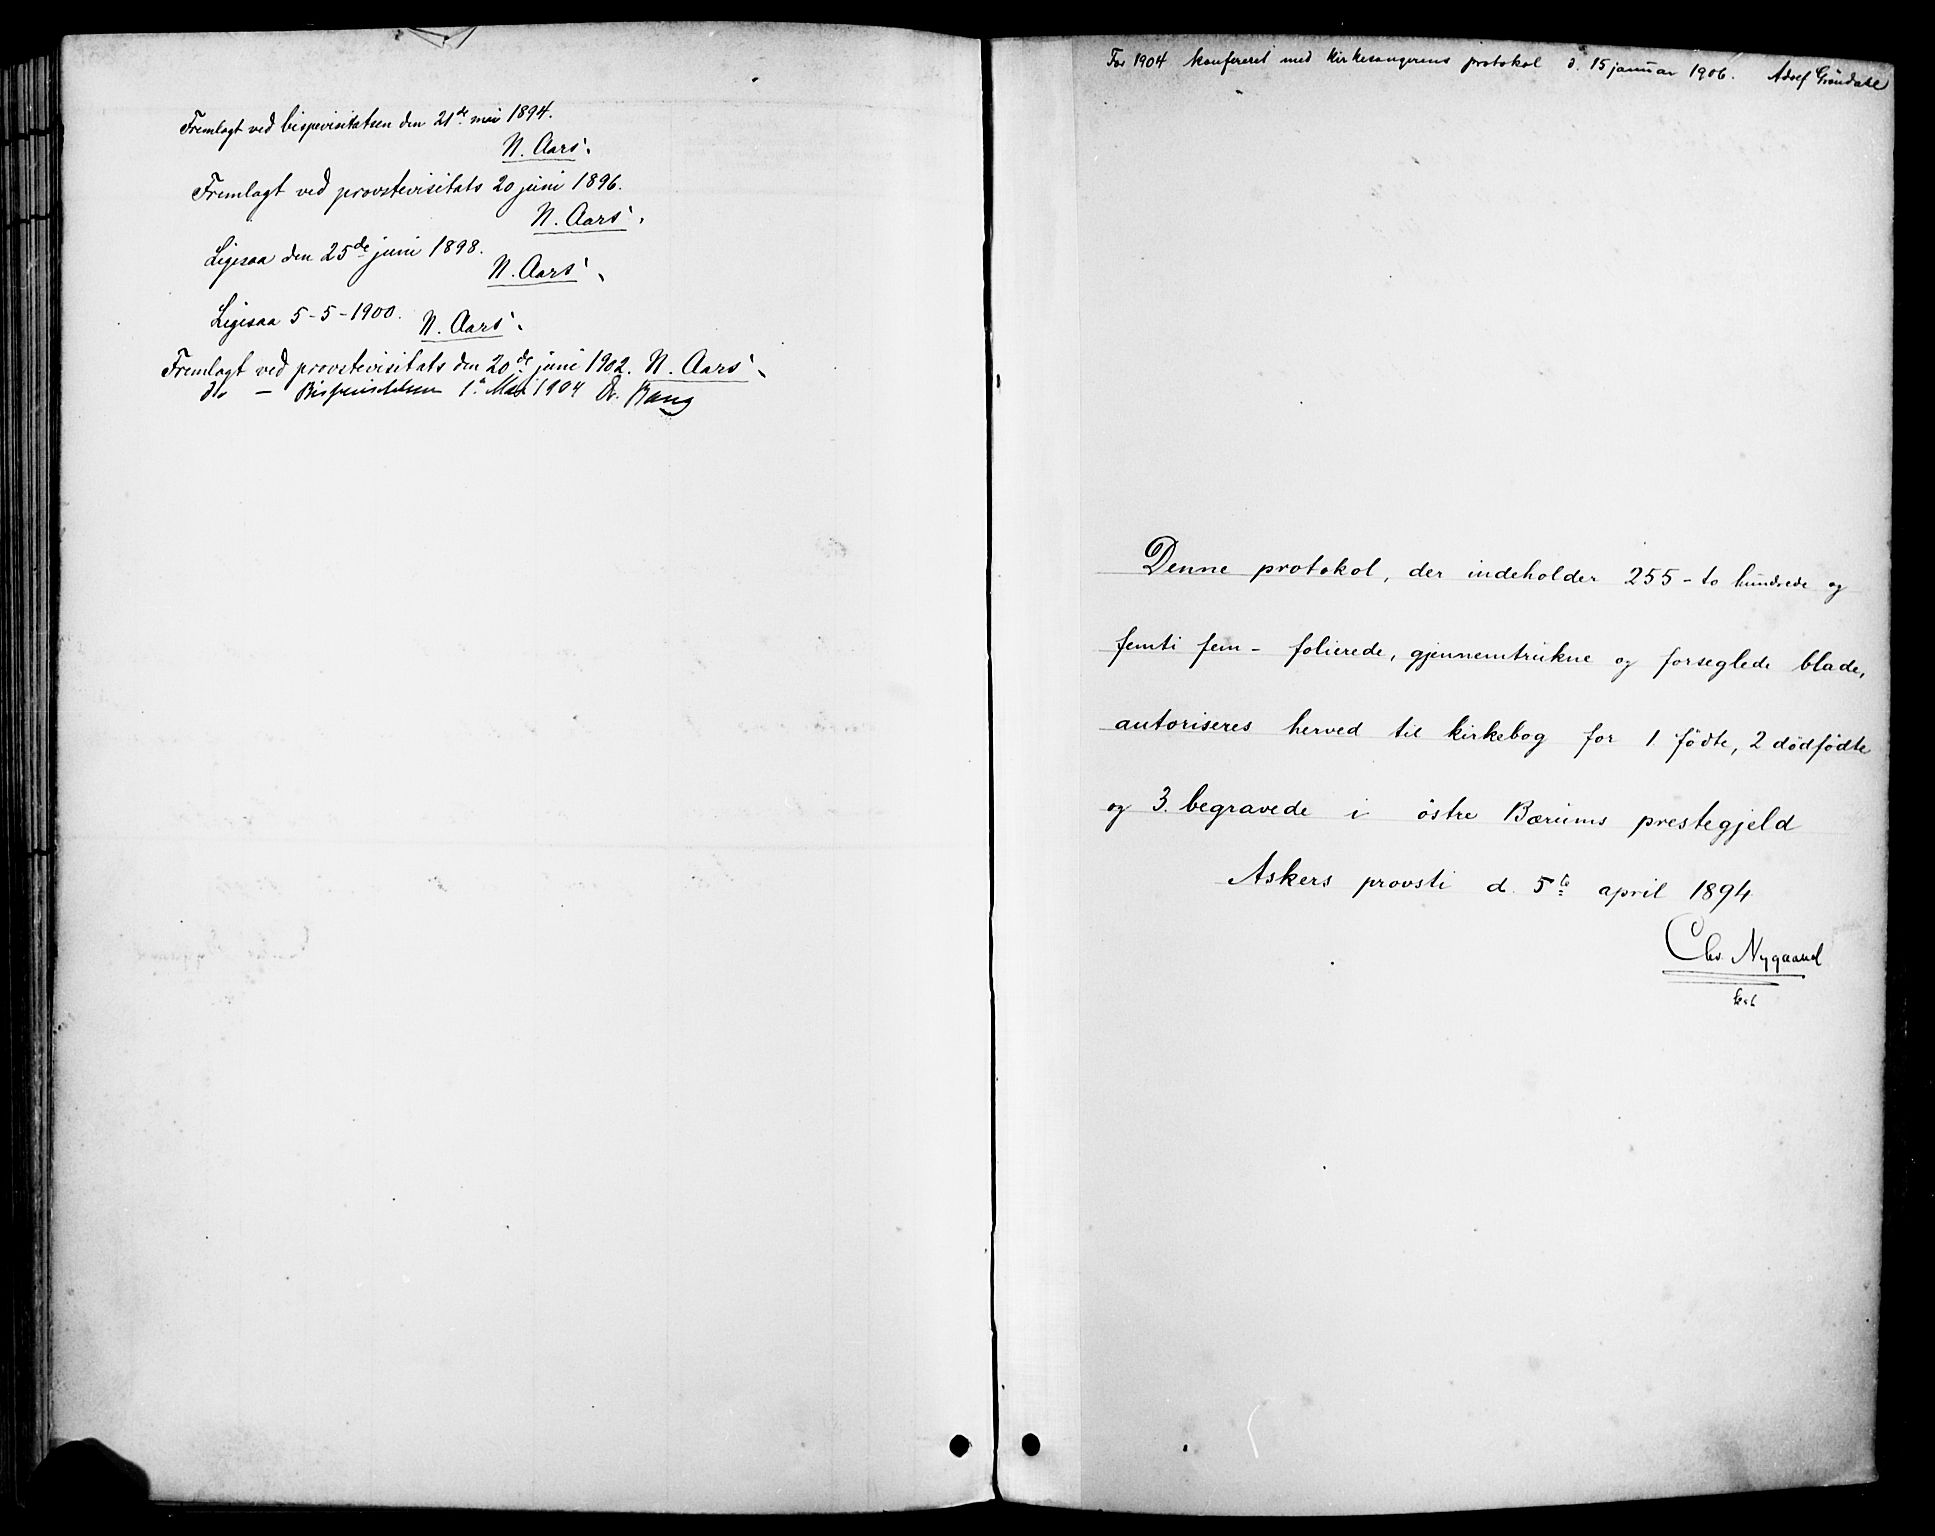 Fremlagt ved bispevisitatsen den 21de mai 1894.
N. Aars.
Fremlagt ved provstevisitats 20 juni 1896.
N. Aars.
Ligesaa den 25de juni 1898.
N. Aars.
Ligesaa 5-5-1900. N. Aars.
Fremlagt ved provstevisitats den 20de juni 1902. N. Aars.
do — Bispevisitatsen 1ste Mai 1904 Bang
For 1904 konfereret med kirkesangerens protokol d. 15 januar 1906. Adolf Gröndahl
Denne protokol, der indeholder 255 - to hundrede og
femti fem - folierede, gjennemtrukne og forseglede blade,
autoriseres herved til kirkebog for 1. fødte, 2 dødfødte
og 3. begravede i östre Bærums prestegjeld
Askers provsti d. 5te april 1894
Chr. Nygaard